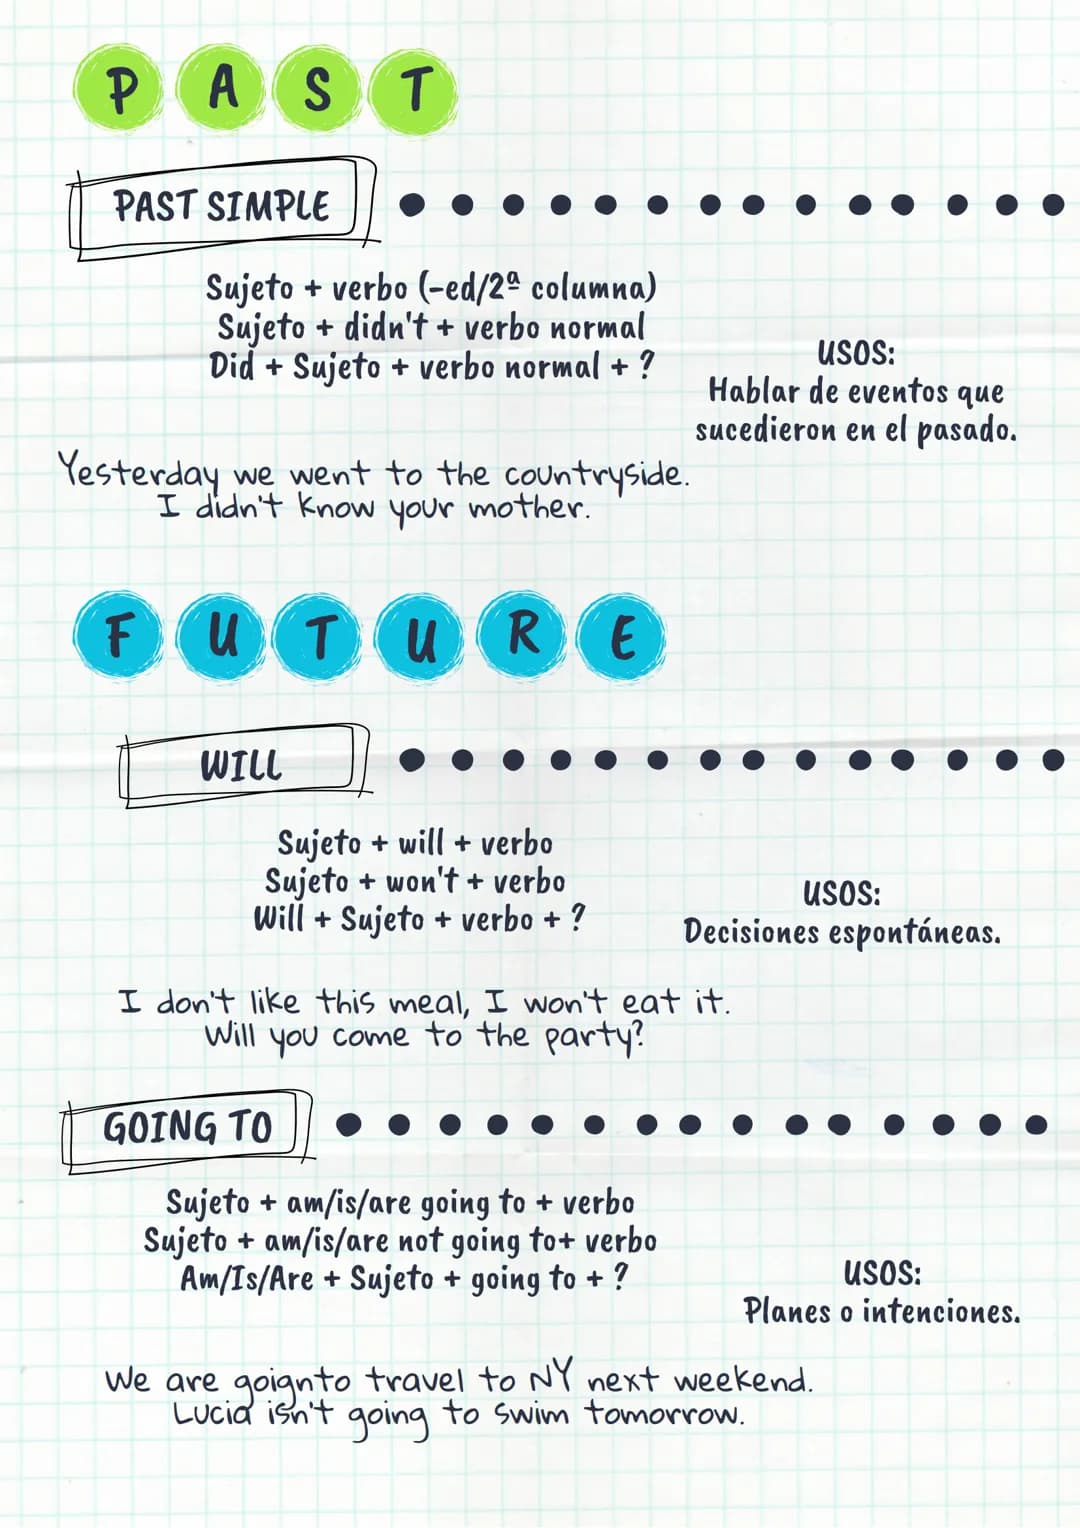 PAST
PAST SIMPLE
Sujeto + verbo (-ed/2ª columna)
Sujeto + didn't + verbo normal
Did + Sujeto + verbo normal + ?
USOS:
Hablar de eventos que
sucedieron en el pasado.
Yesterday we went to the countryside.
I didn't know your mother.
FUTURE
WILL
Sujeto + will + verbo
Sujeto + won't + verbo
Will + Sujeto + verbo + ?
USOS:
Decisiones espontáneas.
I don't like this meal, I won't eat it.
Will you come to the party?
GOING TO
Sujeto + am/is/are going to + verbo
Sujeto + am/is/are not going to+ verbo
Am/Is/Are + Sujeto + going to + ?
USOS:
Planes o intenciones.
We are goignto travel to NY next weekend.
Lucia isn't going to swim tomorrow.